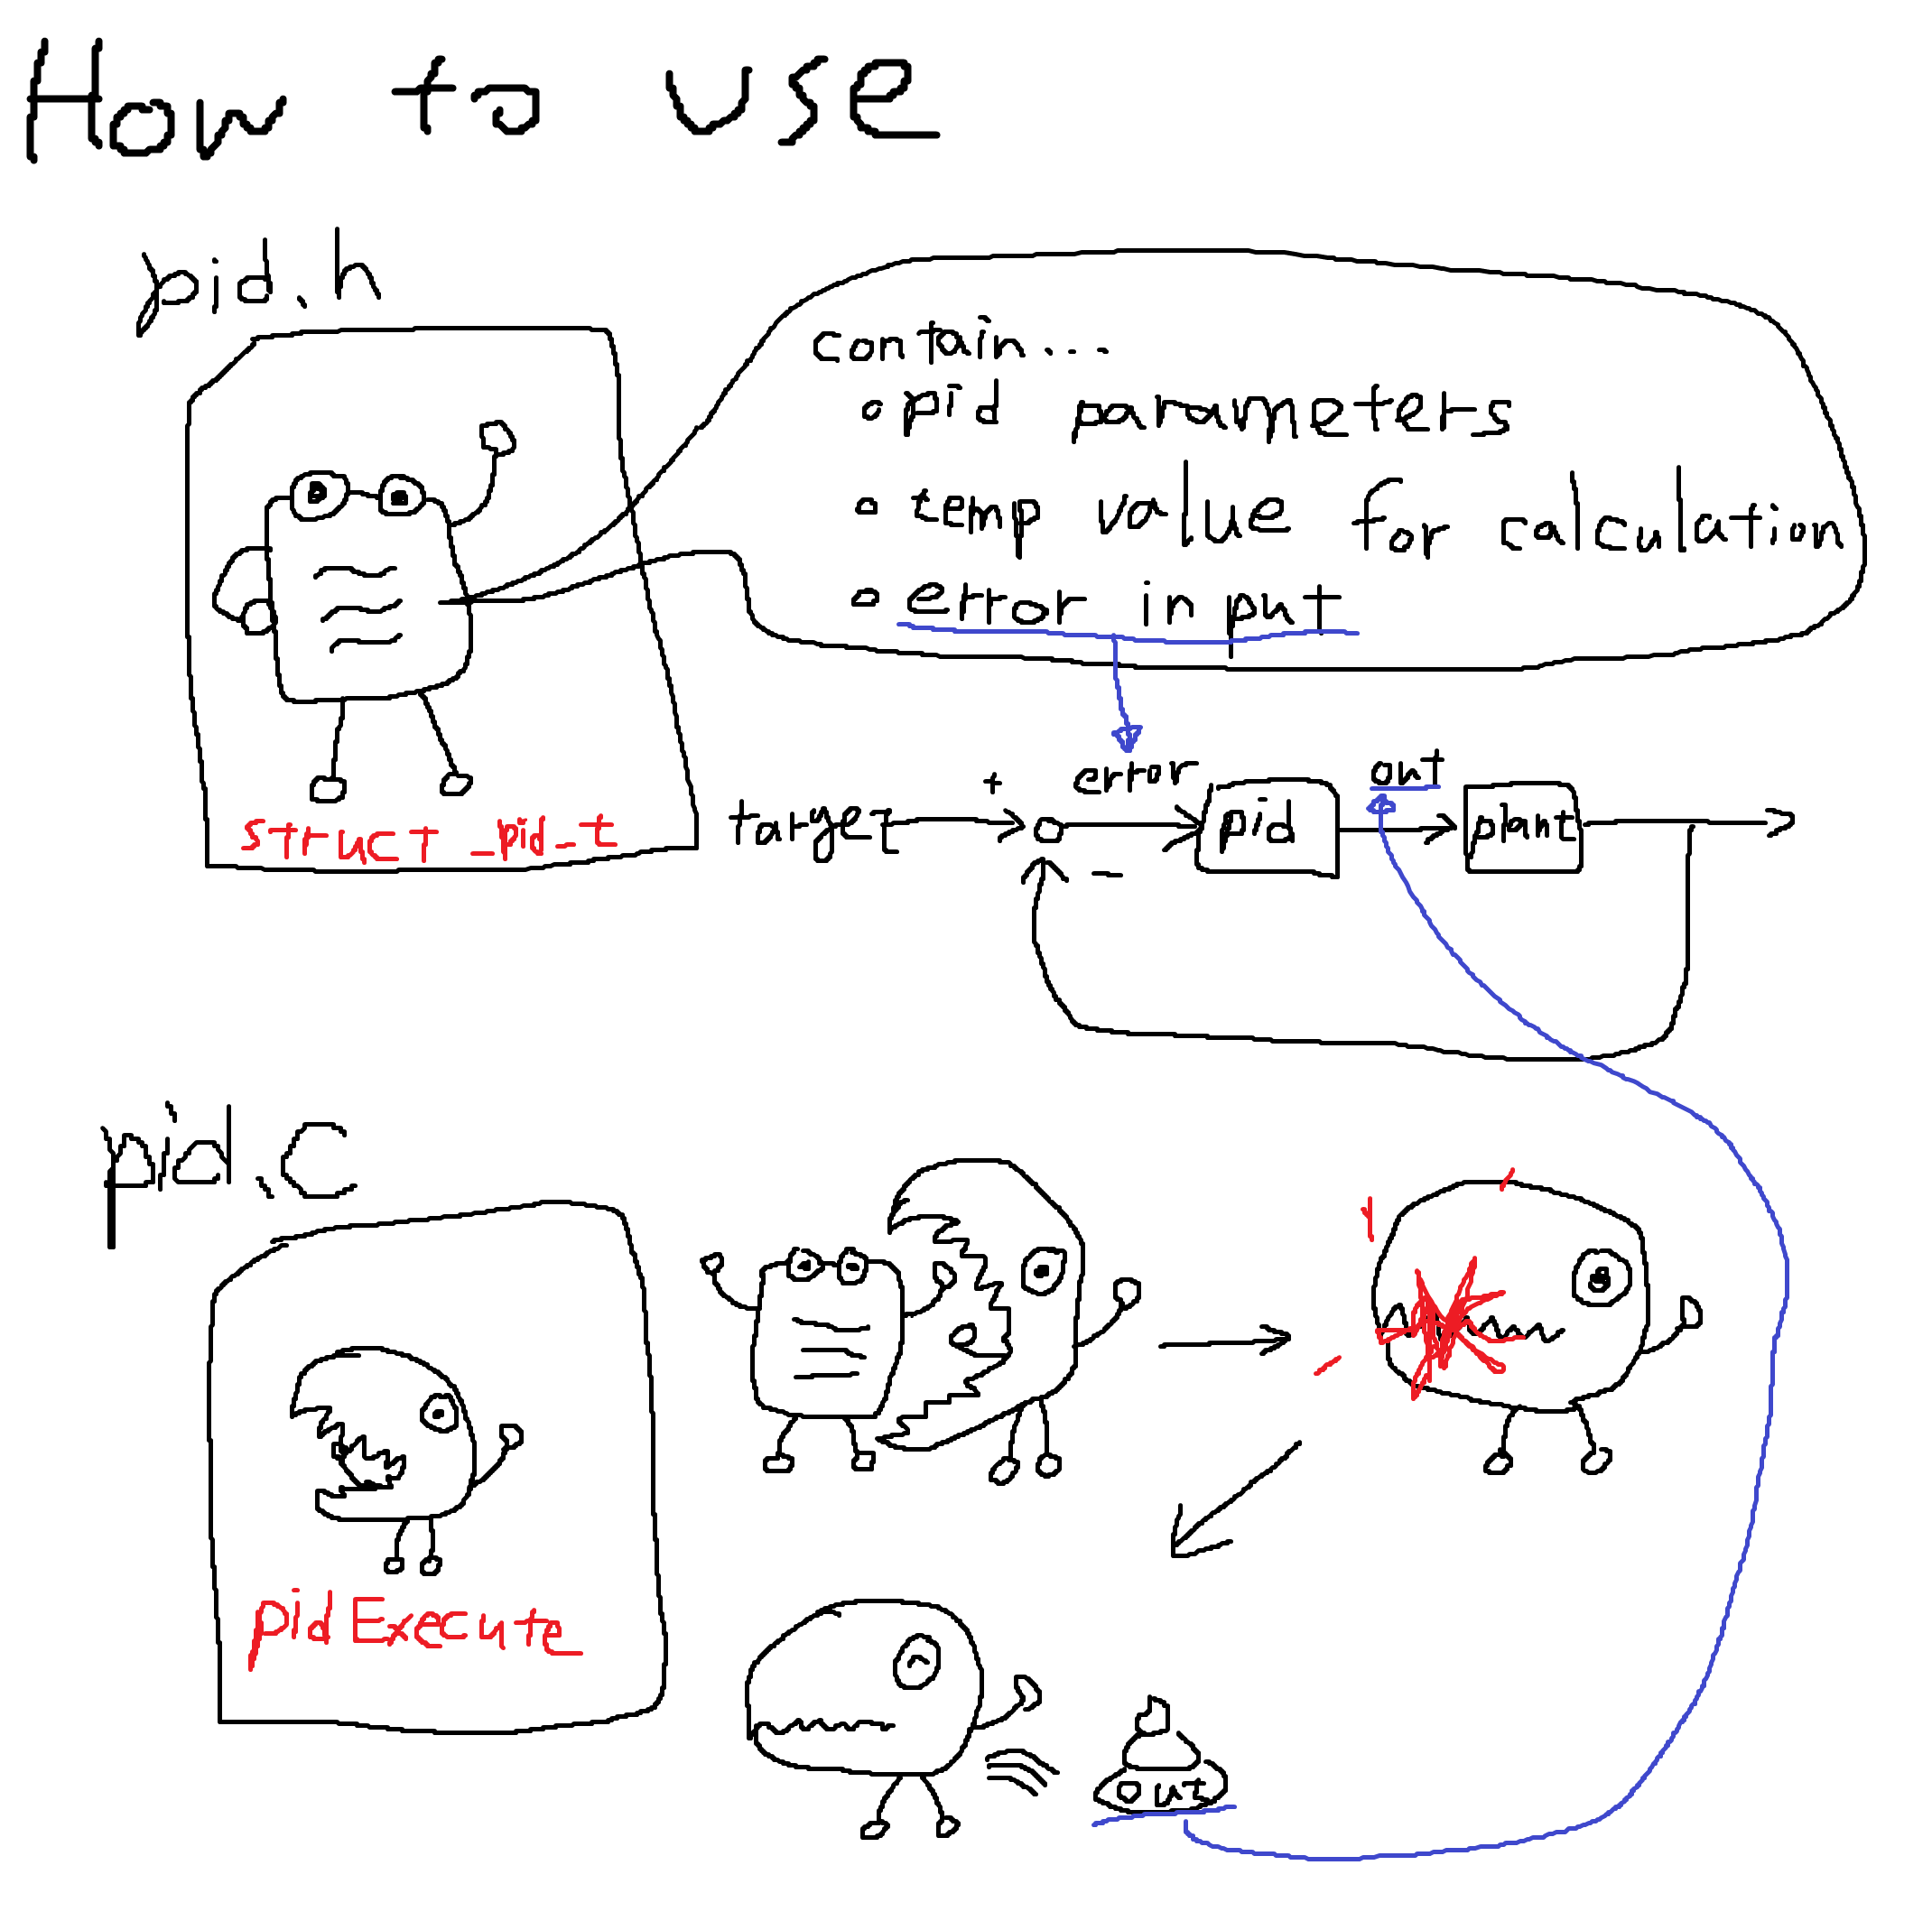 How to use
pid.h
contain...
o pid parameters
o temp value for calculation
o error input
struct _pid_t
target
+
error
pid
out
plant
-
pid.C
pidExecute
out